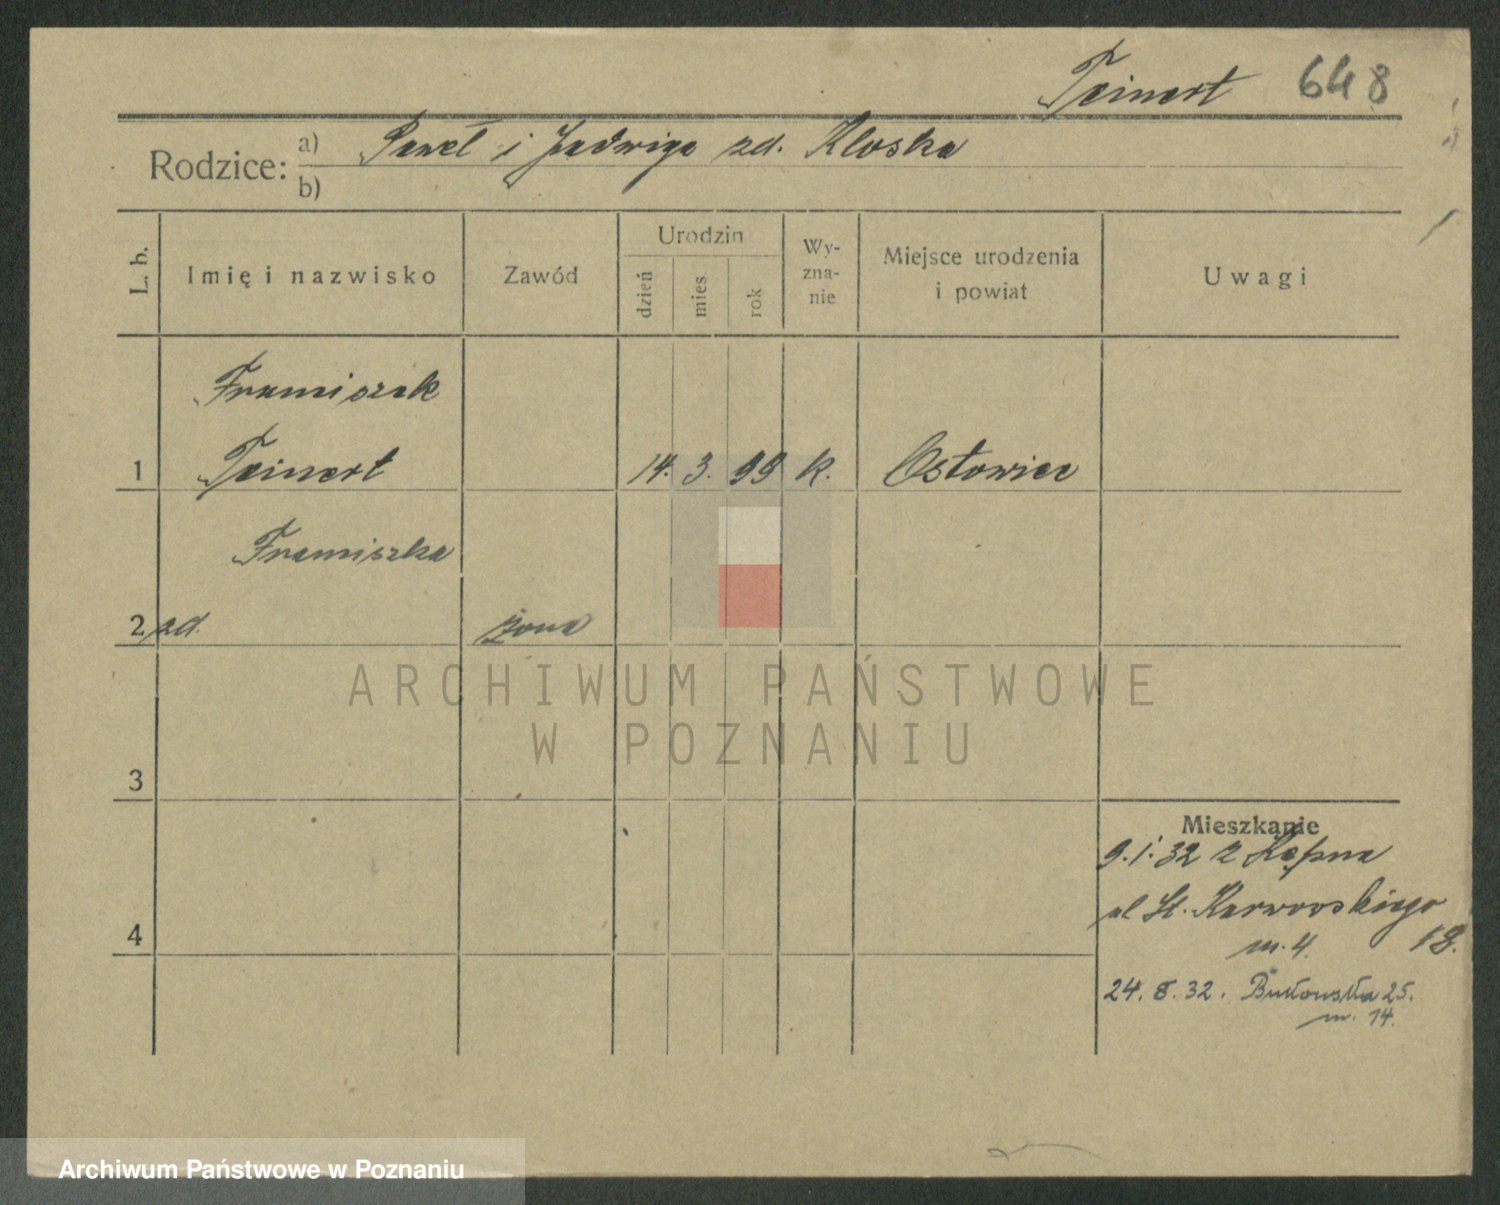 Teinert 648
Rodzice: a) Paweł i Jadwiga zd. Kloska
b)
L. b. Imię i nazwisko Zawód Urodzin dzień mies rok Wy-zna-nie Miejsce urodzenia i powiat Uwagi
Franciszek
1 Teinert 14. 3. 99 k. Osłowiec
Franciszka
2 zd. żona
3
4
Mieszkanie
9.1.32 z Kępna
ul St. Karwowskiego
m. 4. 18.
24. 8. 32. Bukowska 25.
m. 14.
ARCHIWUM PAŃSTWOWE
W POZNANIU
Archiwum Państwowe w Poznaniu